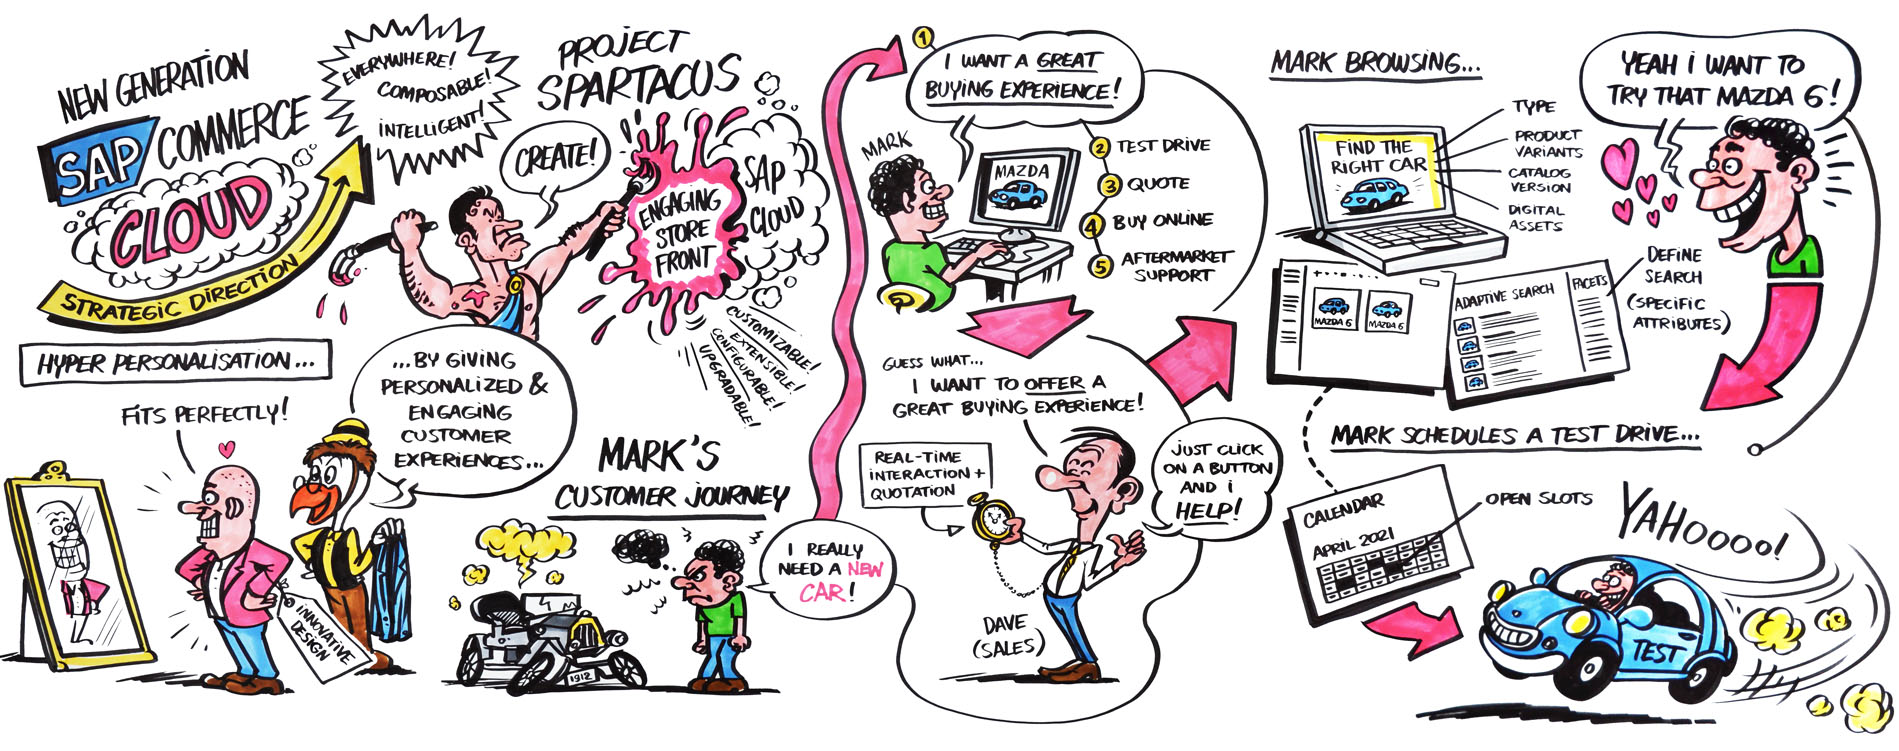 NEW GENERATION
SAP COMMERCE
CLOUD
STRATEGIC DIRECTION
EVERYWHERE!
COMPOSABLE!
INTELLIGENT!
CREATE!
PROJECT
SPARTACUS
ENGAGING
STORE
FRONT
SAP
CLOUD
CUSTOMIZABLE!
EXTENSIBLE!
CONFIGURABLE!
UPGRADABLE!
HYPER PERSONALISATION...
FITS PERFECTLY!
...BY GIVING
PERSONALIZED &
ENGAGING
CUSTOMER
EXPERIENCES...
INNOVATIVE
DESIGN
MARK'S
CUSTOMER JOURNEY
1912
I REALLY
NEED A NEW
CAR!
1
I WANT A GREAT
BUYING EXPERIENCE!
MARK
MAZDA
2 TEST DRIVE
3 QUOTE
4 BUY ONLINE
5 AFTERMARKET
SUPPORT
GUESS WHAT...
I WANT TO OFFER A
GREAT BUYING EXPERIENCE!
REAL-TIME
INTERACTION +
QUOTATION
JUST CLICK
ON A BUTTON
AND I
HELP!
DAVE
(SALES)
MARK BROWSING...
FIND THE
RIGHT CAR
TYPE
PRODUCT
VARIANTS
CATALOG
VERSION
DIGITAL
ASSETS
YEAH I WANT TO
TRY THAT MAZDA 6!
MAZDA 6
MAZDA 6
ADAPTIVE SEARCH
FACETS
DEFINE
SEARCH
(SPECIFIC
ATTRIBUTES)
MARK SCHEDULES A TEST DRIVE...
CALENDAR
APRIL 2021
OPEN SLOTS
YAHOOOO!
TEST